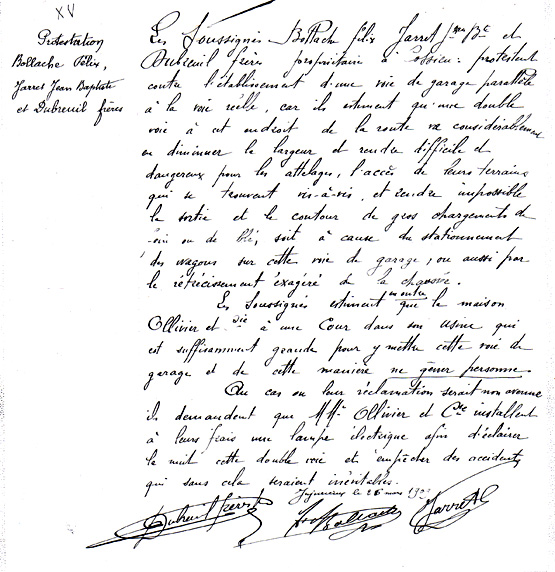 XV
Protestation
Bollache Félix,
Jarret Jean Baptiste
et Dubreuil frères
Les Soussignés Bollache félix Jarret Jean Bte et
Dubreuil frères propriétaire à : protestent
contre l'établissement d'une voie de garage parallèle
à la voie réelle, car ils estiment qu'une double
voie à cet endroit de la route va considérablement
en diminuer la largeur et rendre difficile et
dangereux pour les attelages, l'accès de leurs terrains
qui se trouvent vis-à-vis, et rendre impossible
la sortie et le contour de gros chargements de
foin ou de blé, soit à cause du stationnement
des wagons sur cette voie de garage, ou aussi par
le rétrécissement exagéré de la chaussée.
Les Soussignés estiment en outre que la maison
Ollivier et Cie à une Cour dans son usine qui
est suffisamment grande pour y mettre cette voie de
garage et de cette manière ne gêner personne
Au cas ou leur réclamation serait non avenue
ils demandent que MMrs Ollivier et Cie installent
à leurs frais une lampe électrique afin d'éclairer
la nuit cette double voie et empêcher des accidents
qui sans cela seraient inévitables.
Jujurieux le 26 mars
Dubreuil frères Bollache Jarret